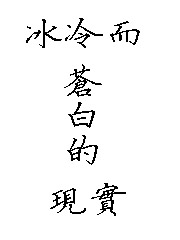 冰冷而
蒼
白
的
現實